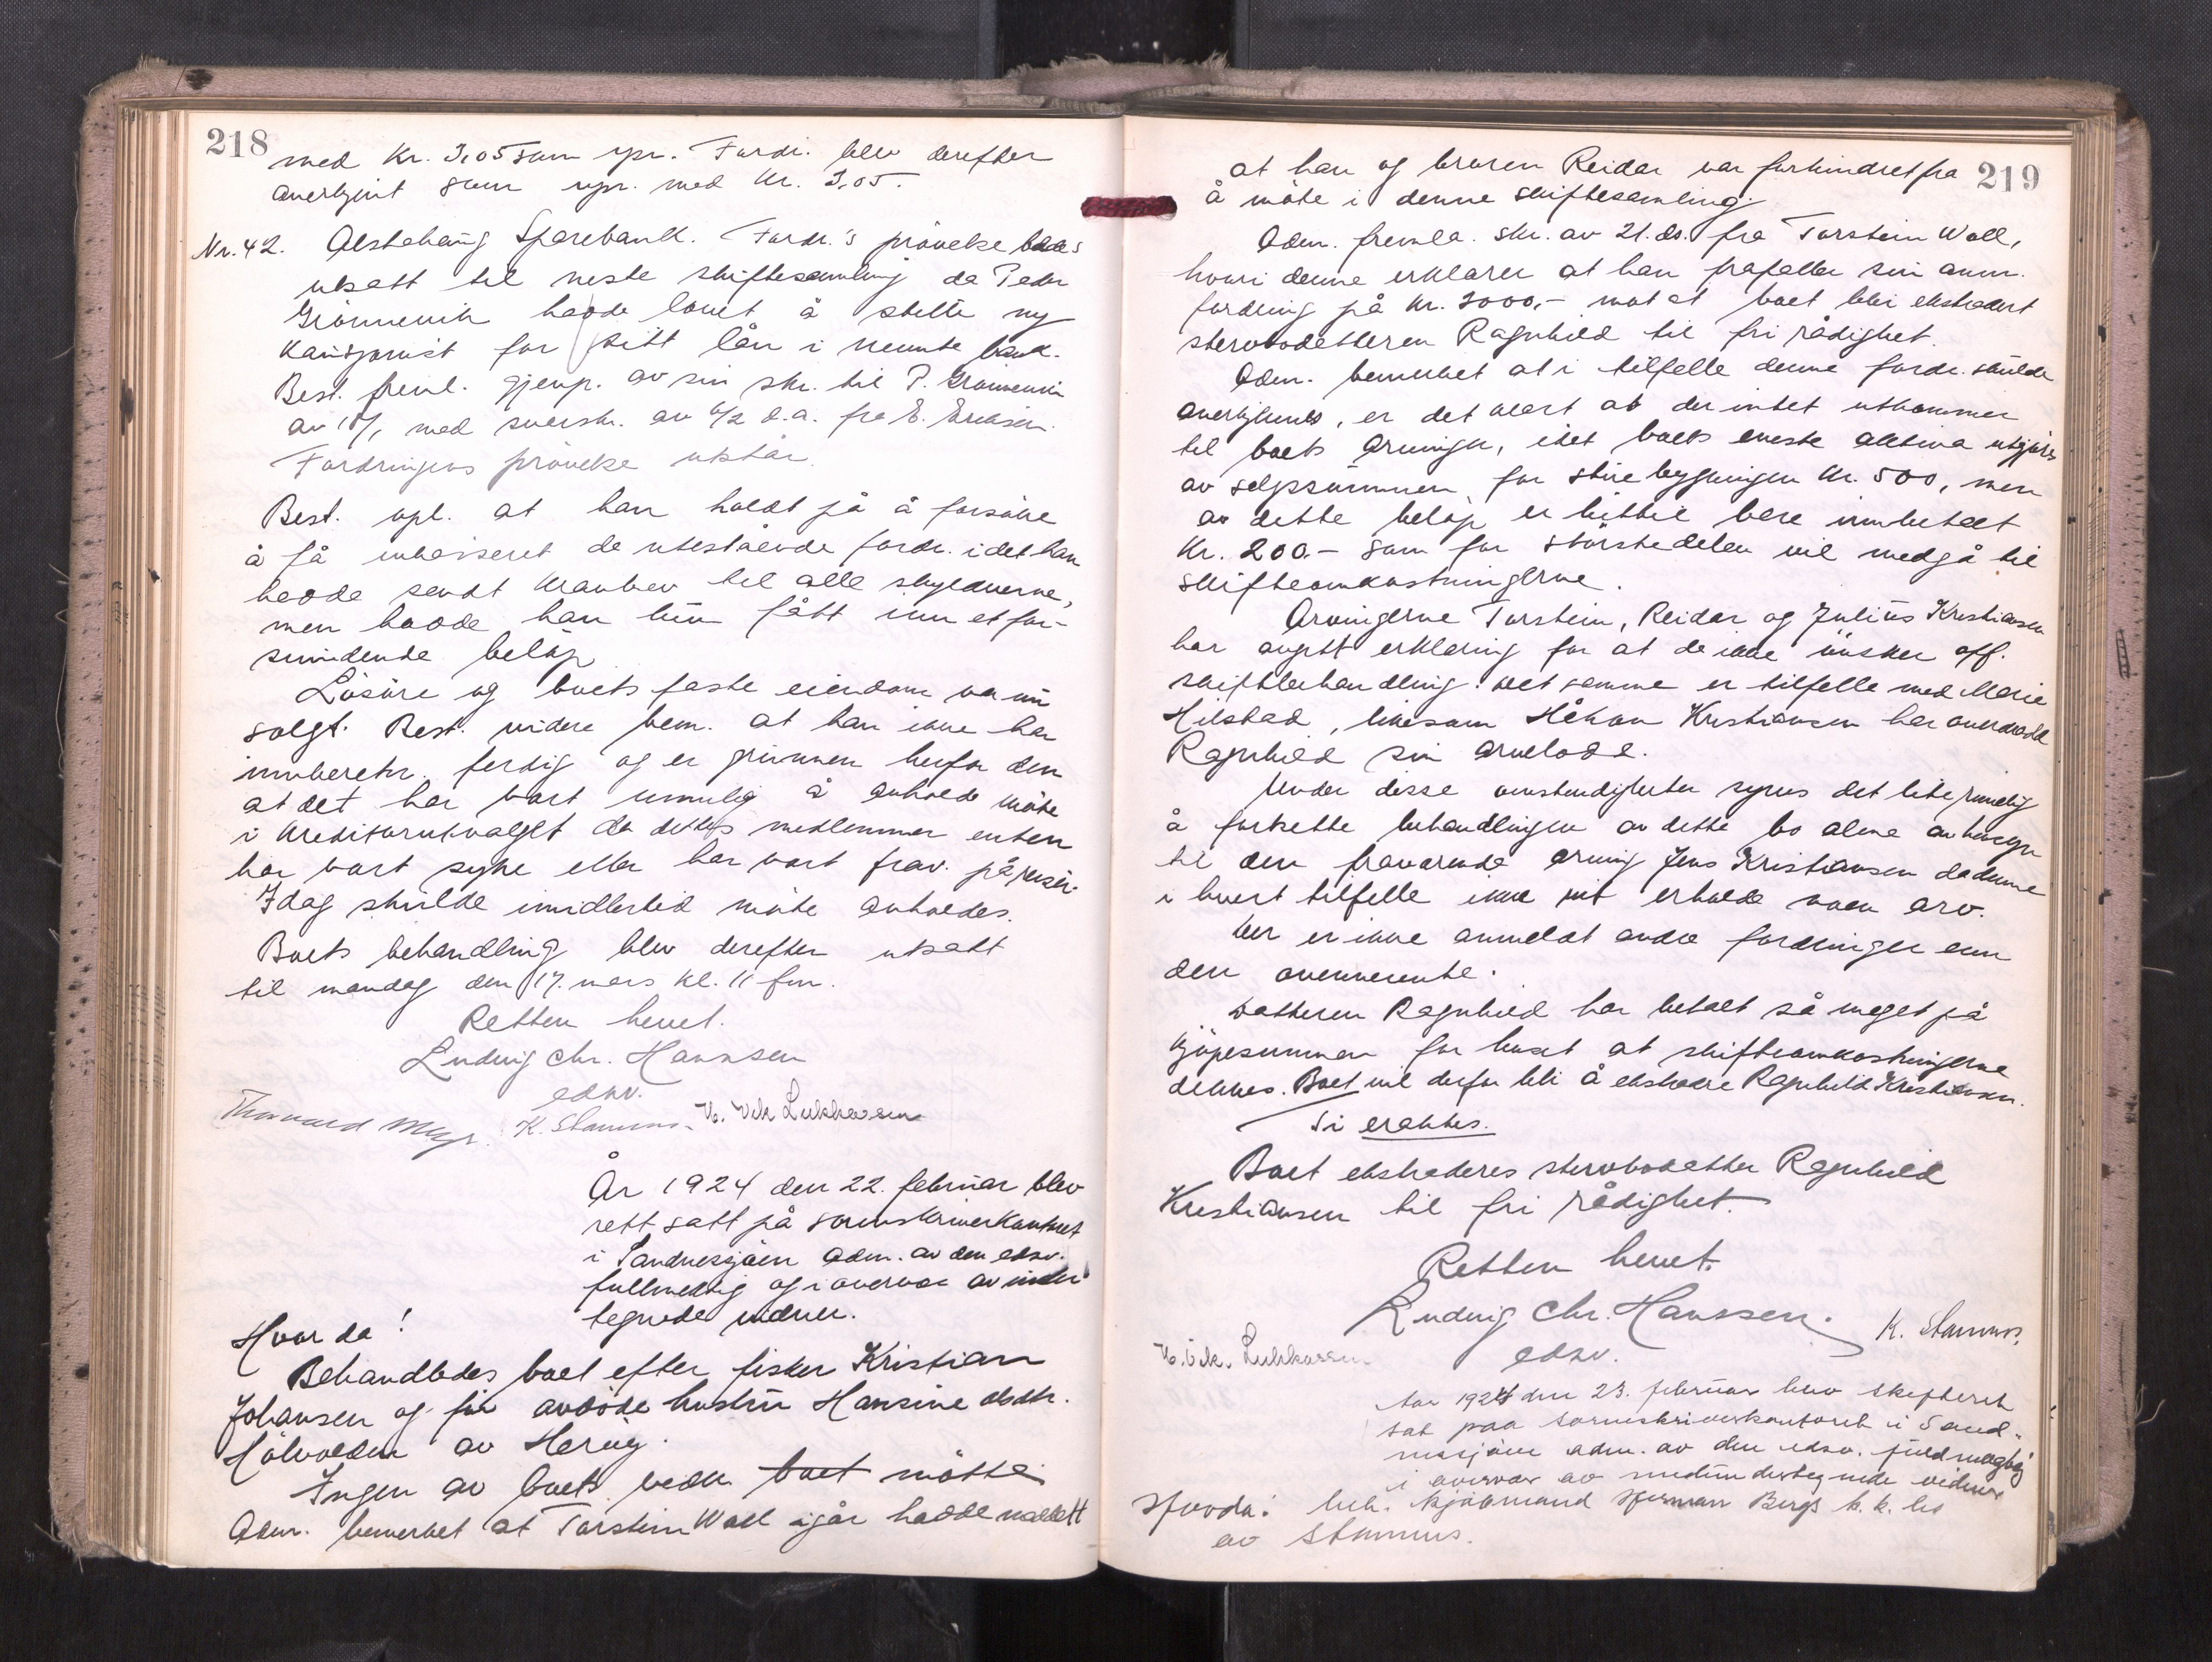 218
med Kr. 3,05 som upr. Fordr. blev derefter
anerkjent som upr. med kr. 3,05.
Nr. 42. Alstahaug Sparebank. Fordr.'s prövelse blev
utsatt til neste skiftesamling da Peder
Grönnevik hadde lovet å stille ny
kausjonist for sitt lån i nevnte bank.
Best. freml. gjenp. av sin skr. til P. Grönnevik
av 18/1 med svarskr. av 6/2 d.a. fra E. Eriksen.
Fordringens prövelse utstår.
Best. opl. at han holdt på å forsöke
å få inkasseret de utestående fordr. idet han
hadde sendt kravbrev til alle skyldnerne,
men hadde han kun fått inn et for-
svindende belöp
Lösöre og boets faste eiendom var nu
solgt. Best. videre bem. at han ikke har
innberetn. ferdig og er grunnen herfor den
at det har vært umulig å avholde möte
i kreditorutvalget da dettes medlemmer enten
har vært syke eller har vært frav. på reiser.
Idag skulde imidlertid möte avholdes.
Boets behandling blev derefter utsatt
til mandag den 17. mars kl. 11 fm.
Retten hevet.
Ludvig Chr. Hanssen
edsv.
Thorvard Meyer. K. Stamnes. H. Vik Lukkassen
År 1924 den 22. februar blev
rett satt på sorenskriverkontoret
i Sandnessjöen adm. av den edsv.
fullmektig og i overvær av under
tegnede vidner.
Hvor da!
Behandledes boet efter fisker Kristian
Johansen og för avdöde hustru Hansine Olsdtr.
Hölvolden av Heröy.
Ingen av boets vedk. boet mötte
Adm. bemerket at Torstein Wall igår hadde meldt
219
at han og broren Reidar var forhindret fra
å möte i denne skiftesamling.
Adm. fremla. skr. av 21. ds. fra Torstein Wall,
hvori denne erklærer at han frafaller sin anm.
fordring på kr. 3000,- mot at boet blir ekstradert
stervbodatteren Ragnhild til fri rådighet.
Adm. bemerket at i tilfelle denne fordr. skulde
anerkjennes, er det klart at der intet utkommer
til boets arvinger, idet boets eneste aktiva utgjöres
av salgssummen for stuebygningen kr. 500, men
av dette belöp er hittil bare innbetalt
Kr. 200.- som for störstedelen vil medgå til
skifteomkostningerne.
Arvingerne Torstein, Reidar og Julius Kristiansen
har avgitt erklæring for at de ikke önsker off.
skiftebehandling. Det samme er tilfelle med Marie
Hilstad, likesom Håkon Kristiansen har overdradd
Ragnhild sin arvelodd.
Under disse omstendigheter synes det lite rimelig
å fortsette behandlingen av dette bo alene av hensyn
til den fraværende arving Jens Kristiansen da denne
i hvert tilfelle ikke vil erholde noen arv.
Der er ikke anmeldt andre fordringer enn
den ovennevnte.
Datteren Ragnhild har betalt så meget på
kjöpesummen for huset at skifteomkostningerne
dekkes. Boet vil derfor bli å ekstradere Ragnhild Kristiansen.
Ti eraktes.
Boet ekstraderes stervbodatter Ragnhild
Kristiansen til fri rådighet.
Retten hevet.
Ludvig Chr. Hanssen. K. Stamnes.
H. Vik. Lukkassen edsv.
Aar 1924 den 23. februar blev skifteret
sat paa sorenskriverkontoret i Sand-
nessjöen adm. av den edsv. fuldmægtig
i overvær av medundertegnede vidner
Hvorda: beh. kjöbmand Herman Bergs k.k. bo
av Stamnes.